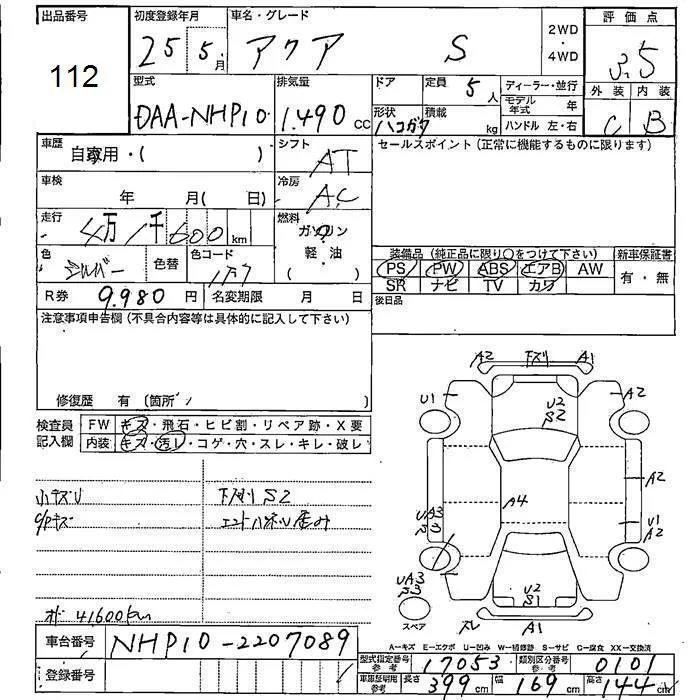 出品番号 初度登録年月 車名・グレード 評価点
112 25 5月 アクア S 2WD・4WD 3.5
型式 排気量 ドア 定員 5人 ディーラー・並行 外装 内装
DAA-NHP10 1.490 cc 形状 ハコガタ 積載 kg モデル年式 年 C B
ハンドル 左・右
車歴 自家用・( ) シフト AT セールスポイント(正常に機能するものに限ります)
車検 年 月( 日) 冷房 AC
走行 4万1千600 km 燃料 ガソリン
軽油
( )
色 シルバー 色替 色コード 1F7
装備品(純正品に限り○をつけて下さい) 新車保証書
PS PW ABS エアB AW 有・無
SR ナビ TV カワ
R券 9.980円 名変期限 月 日 後日品
注意事項申告欄(不具合内容等は具体的に記入して下さい)
修復歴 有 〔箇所 〕
検査員記入欄 FW キズ・飛石・ヒビ割・リペア跡・X要
内装 キズ・汚レ・コゲ・穴・スレ・キレ・破レ
小キズU 下廻り S2
C/Pキズ
オド 41600km
A2 下廻り A1
U1 U2 S2 A2
A4 A2
UA3 U1 A2
UA3 U2 S1
スペア スレ A1
A=キズ E=エクボ U=凹み W=補修跡 S=サビ C=腐食 XX=交換済
車台番号 NHP10-2207089
登録番号
型式指定番号参考 17053 類別区分番号参考 0101
車庫証明用参考 長さ 399cm 幅 169cm 高さ 144cm